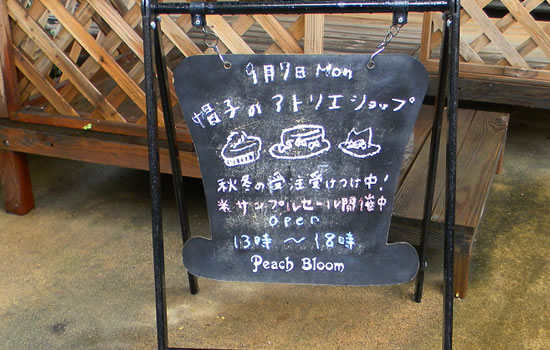 9月7日 Mon
帽子のアトリエショップ
秋冬の受注受けつけ中!
※サンプルセール開催中
open
13時〜18時
Peach Bloom